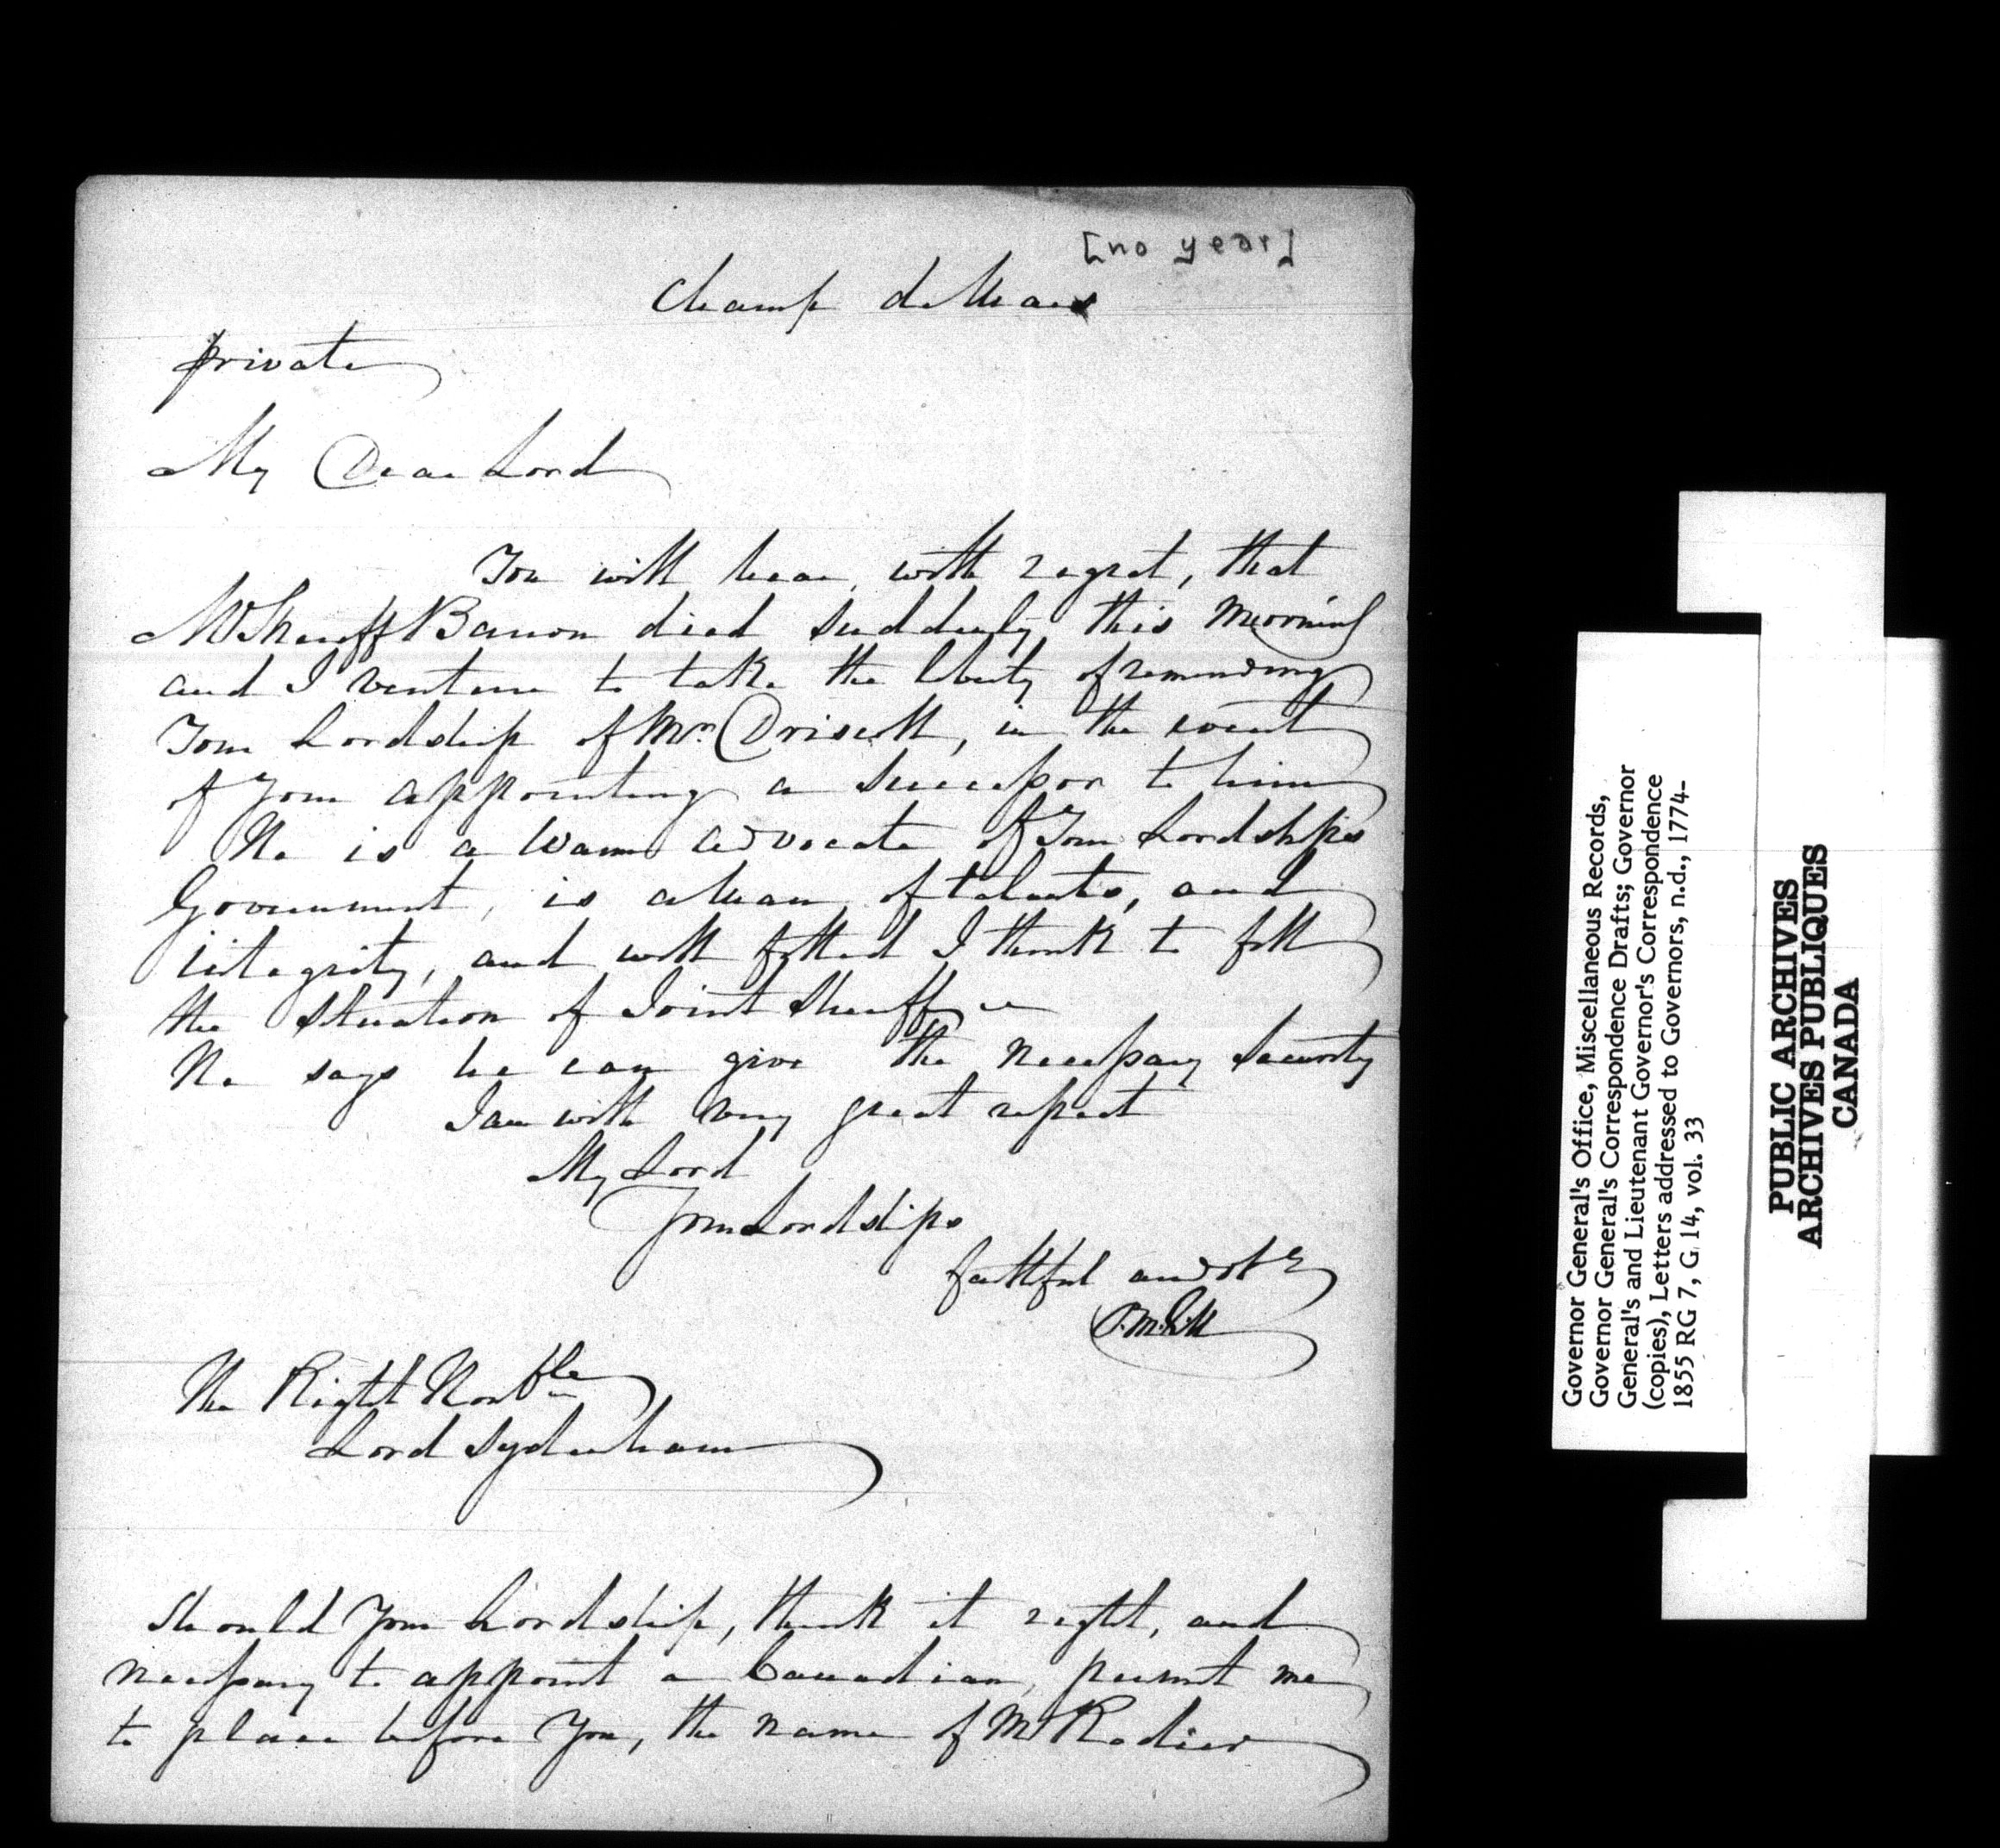 [no year]
Champ de Mars
private
My Dear Lord
You will hear, with regret, that
Mr Sheriff Barron died suddenly this morning
and I venture to take the liberty of reminding
Your Lordship of Mr. Driscoll, in the event
of Your appointing a successor to him
He is a warm advocate of Your Lordships
Government, is a Man of talents, and
integrity, and well fitted I think to fill
the situation of Joint Sheriff
He says he can give the necessary security
I am with very great respect
My Lord
Your Lordships
faithful and obt
The Right Honble
Lord Sydenham
Should Your Lordship, think it right, and
necessary to appoint a Canadian, permit me
to place before You, the name of Mr Rodier
Governor General's Office, Miscellaneous Records,
Governor General's Correspondence Drafts; Governor
General's and Lieutenant Governor's Correspondence
(copies), Letters addressed to Governors, n.d., 1774-
1855 RG 7, G 14, vol. 33
PUBLIC ARCHIVES
ARCHIVES PUBLIQUES
CANADA